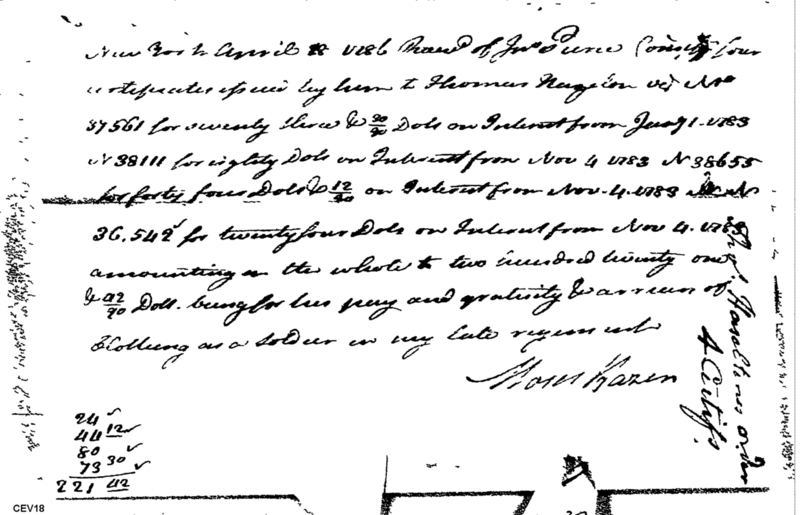 New York April 28 1786 Recd of Jno Pierce Commr four
certificates issued by him to Thomas viz No
37561 for seventy three & 30/90 Dols on Interest from Jany 1. 1783
N 38111 for eighty Dols on Interest from Nov 4 1783 N 38655
for forty four Dols & 12/90 on Interest from Nov. 4. 1783 N
36.542 for twenty four Dols on Interest from Nov 4. 1783
amounting in the whole to two hundred twenty one
& 42/90 Doll. being for his pay and gratuity & arrears of
Clothing as a soldier in my late regiment
Moses Hazen
Thos Haseltines order
4 Certifs
24
44 12
80
73 30
221 42
CEV18